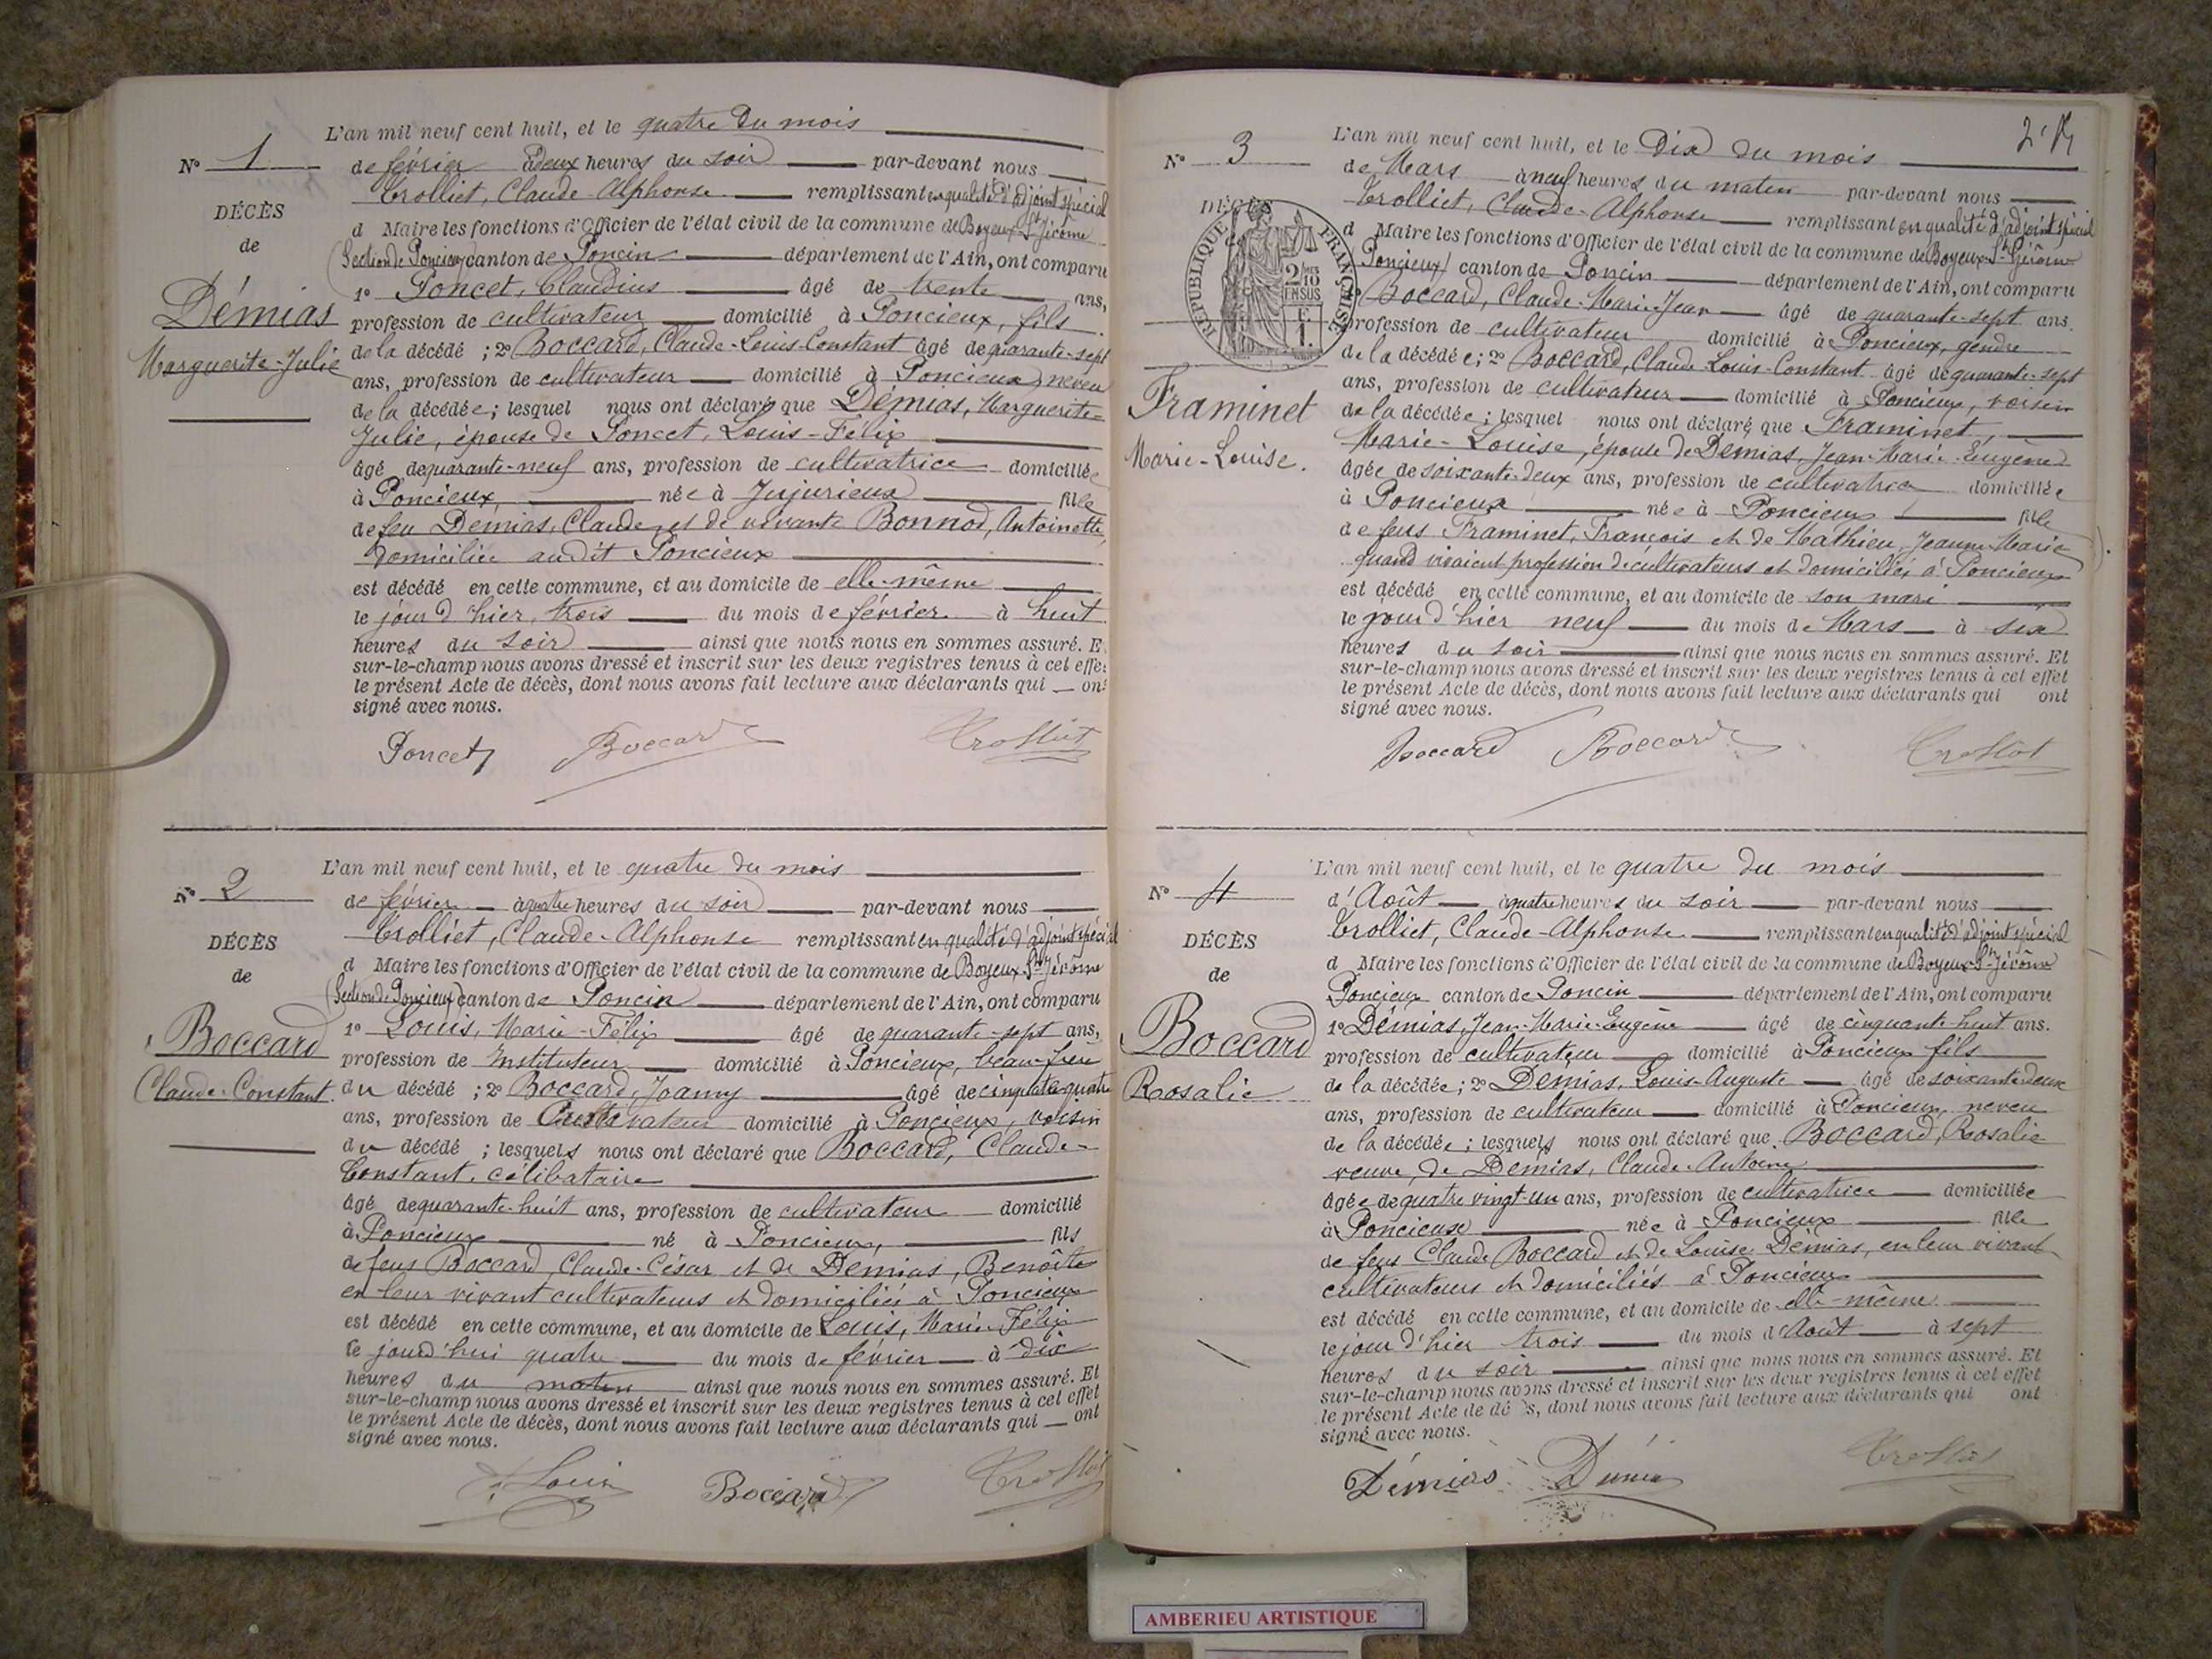 L'an mil neuf cent huit, et le quatre du mois
N° 1
de février à deux heures du soir par-devant nous
Trolliet, Claude Alphonse remplissant en qualité d'adjoint spécial
DÉCÈS
d Maire les fonctions d'Officier de l'état civil de la commune de Boyeux-St Jérôme
de
(Section de Poncieux) canton de Poncin département de l'Ain, ont comparu
1° Poncet, Claudius âgé de trente ans,
Démias
profession de cultivateur domicilié à Poncieux, fils
Marguerite-Julie
de la décédé ; 2° Boccard, Claude-Louis-Constant âgé de quarante-sept
ans, profession de cultivateur domicilié à Poncieux, neveu
de la décédée ; lesquel nous ont déclaré que Démias, Marguerite-
Julie, épouse de Poncet, Louis-Félix
âgé de quarante-neuf ans, profession de cultivatrice domiciliée
à Poncieux née à Jujurieux fille
de feu Démias, Claude et de vivante Bonnod, Antoinette
domiciliée audit Poncieux
est décédé en cette commune, et au domicile de elle-même
le jour d'hier, trois du mois de février à huit
heures du soir ainsi que nous nous en sommes assuré. E
sur-le-champ nous avons dressé et inscrit sur les deux registres tenus à cet effe
le présent Acte de décès, dont nous avons fait lecture aux déclarants qui ont
signé avec nous.
Poncet Boccard Trolliet
L'an mil neuf cent huit, et le quatre du mois
N° 2
de février à quatre heures du soir par-devant nous
Trolliet, Claude-Alphonse remplissant en qualité d'adjoint spécial
DÉCÈS
d Maire les fonctions d'Officier de l'état civil de la commune de Boyeux-St Jérôme
de
(Section de Poncieux) canton de Poncin département de l'Ain, ont comparu
1° Louis, Marie-Félix âgé de quarante-sept ans,
Boccard
profession de Instituteur domicilié à Poncieux, beau-frère
Claude-Constant
du décédé ; 2° Boccard, Joanny âgé de cinquante-quatre
ans, profession de Cultivateur domicilié à Poncieux, voisin
du décédé ; lesquels nous ont déclaré que Boccard, Claude-
Constant, célibataire
âgé de quarante-huit ans, profession de cultivateur domicilié
à Poncieux né à Poncieux, fils
de feus Boccard, Claude-César et de Démias, Benoîte
en leur vivant cultivateurs et domiciliés à Poncieux
est décédé en cette commune, et au domicile de Louis, Marie-Félix
le jourd'hui quatre du mois de février à dix
heures du matin ainsi que nous nous en sommes assuré. Et
sur-le-champ nous avons dressé et inscrit sur les deux registres tenus à cet effet
le présent Acte de décès, dont nous avons fait lecture aux déclarants qui ont
signé avec nous.
Louis Boccard Trolliet
L'an mil neuf cent huit, et le Dix du mois
N° 3
de Mars à neuf heures du matin par-devant nous
Trolliet, Claude-Alphonse remplissant en qualité d'adjoint spécial
DÉCÈS
RÉPUBLIQUE FRANÇAISE
2/10 EN SUS
F 1.
d Maire les fonctions d'Officier de l'état civil de la commune de Boyeux-St Jérôme
Poncieux) canton de Poncin département de l'Ain, ont comparu
Boccard, Claude-Marie-Jean âgé de quarante-sept ans
profession de cultivateur domicilié à Poncieux, gendre
de la décédée ; 2° Boccard, Claude-Louis-Constant âgé de quarante-sept
Framinet
Marie-Louise.
ans, profession de cultivateur domicilié à Poncieux, voisin
de la décédée ; lesquel nous ont déclaré que Framinet,
Marie-Louise, épouse de Démias, Jean-Marie-Eugène
âgée de soixante-deux ans, profession de cultivatrice domiciliée
à Poncieux née à Poncieux fille
de feus Framinet, François et de Mathieu, Jeanne-Marie
quand vivaient profession de cultivateurs et domiciliés à Poncieux
est décédé en cette commune, et au domicile de son mari
le jour d'hier neuf du mois de Mars à six
heures du soir ainsi que nous nous en sommes assuré. Et
sur-le-champ nous avons dressé et inscrit sur les deux registres tenus à cet effet
le présent Acte de décès, dont nous avons fait lecture aux déclarants qui ont
signé avec nous.
Boccard Boccard Trolliet
L'an mil neuf cent huit, et le quatre du mois
N° 4
d'Août à quatre heures du soir par-devant nous
Trolliet, Claude-Alphonse remplissant en qualité d'adjoint spécial
DÉCÈS
d Maire les fonctions d'Officier de l'état civil de la commune de Boyeux-St Jérôme
de
Poncieux canton de Poncin département de l'Ain, ont comparu
1° Démias, Jean-Marie-Eugène âgé de cinquante-huit ans.
Boccard
profession de cultivateur domicilié à Poncieux fils
Rosalie
de la décédée ; 2° Démias, Louis-Auguste âgé de soixante-deux
ans, profession de cultivateur domicilié à Poncieux, neveu
de la décédée ; lesquels nous ont déclaré que Boccard, Rosalie
veuve de Démias, Claude-Antoine
âgée de quatre vingt-un ans, profession de cultivatrice domiciliée
à Poncieux née à Poncieux fille
de feus Claude Boccard et de Louise Démias, en leur vivant
cultivateurs et domiciliés à Poncieux
est décédé en cette commune, et au domicile de elle-même
le jour d'hier trois du mois d'Août à sept
heures du soir ainsi que nous nous en sommes assuré. Et
sur-le-champ nous avons dressé et inscrit sur les deux registres tenus à cet effet
le présent Acte de dé s, dont nous avons fait lecture aux déclarants qui ont
signé avec nous.
Démias Démias Trolliet
AMBERIEU ARTISTIQUE